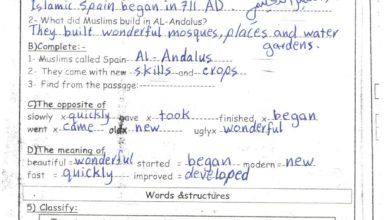 Islamic Spain began in 711 AD
2- What did Muslims build in AL-Andalus?
They built wonderful mosques, places and water gardens.
B)Complete:-
1- Muslims called Spain AL-Andalus
2- They came with new skills and crops
3- Find from the passage:
C)The opposite of
slowly x quickly gave x took finished, x began
went x came old x new ugly x wonderful
D)The meaning of
beautiful = wonderful started = began modern = new
fast = quickly improved = developed
Words &structures
5) Classify: